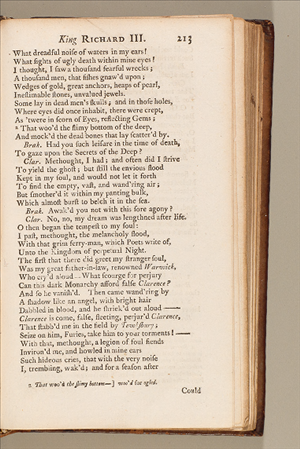 King RICHARD III. 213
What dreadful noise of waters in my ears!
What sights of ugly death within mine eyes!
I thought, I saw a thousand fearful wrecks;
A thousand men, that fishes gnaw'd upon;
Wedges of gold, great anchors, heaps of pearl,
Inestimable stones, unvalued jewels.
Some lay in dead men's sculls; and in those holes,
Where eyes did once inhabit, there were crept,
As 'twere in scorn of Eyes, reflecting Gems;
² That woo'd the slimy bottom of the deep,
And mock'd the dead bones that lay scatter'd by.
Brak. Had you such leisure in the time of death,
To gaze upon the Secrets of the Deep?
Clar. Methought, I had; and often did I strive
To yield the ghost; but still the envious flood
Kept in my soul, and would not let it forth
To find the empty, vast, and wand'ring air;
But smother'd it within my panting bulk,
Which almost burst to belch it in the sea.
Brak. Awak'd you not with this sore agony?
Clar. No, no, my dream was lengthned after life.
O then began the tempest to my soul:
I past, methought, the melancholy flood,
With that grim ferry-man, which Poets write of,
Unto the Kingdom of perpetual Night.
The first that there did greet my stranger soul,
Was my great father-in-law, renowned Warwick,
Who cry'd aloud — What scourge for perjury
Can this dark Monarchy afford false Clarence?
And so he vanish'd. Then came wand'ring by
A shadow like an angel, with bright hair
Dabbled in blood, and he shriek'd out aloud ——
Clarence is come, false, fleeting, perjur'd Clarence,
That stabb'd me in the field by Tewksbury;
Seize on him, Furies, take him to your torments! —
With that, methought, a legion of foul fiends
Inviron'd me, and howled in mine ears
Such hideous cries, that with the very noise
I, trembling, wak'd; and for a season after
2 That woo'd the slimy bottom—] woo'd for ogled.
Could